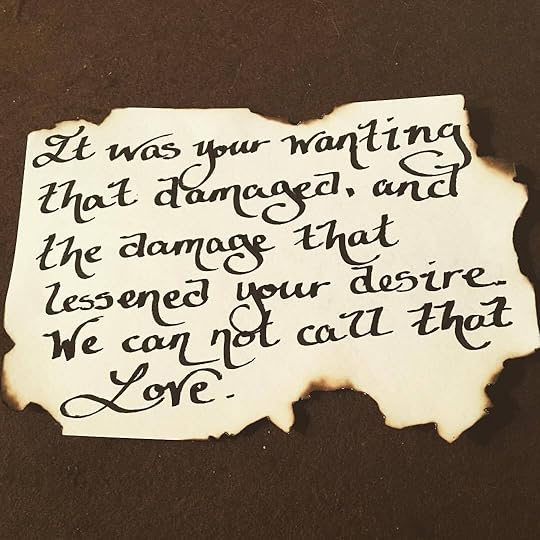 It was your wanting
that damaged, and
the damage that
lessened your desire.
We can not call that
Love.